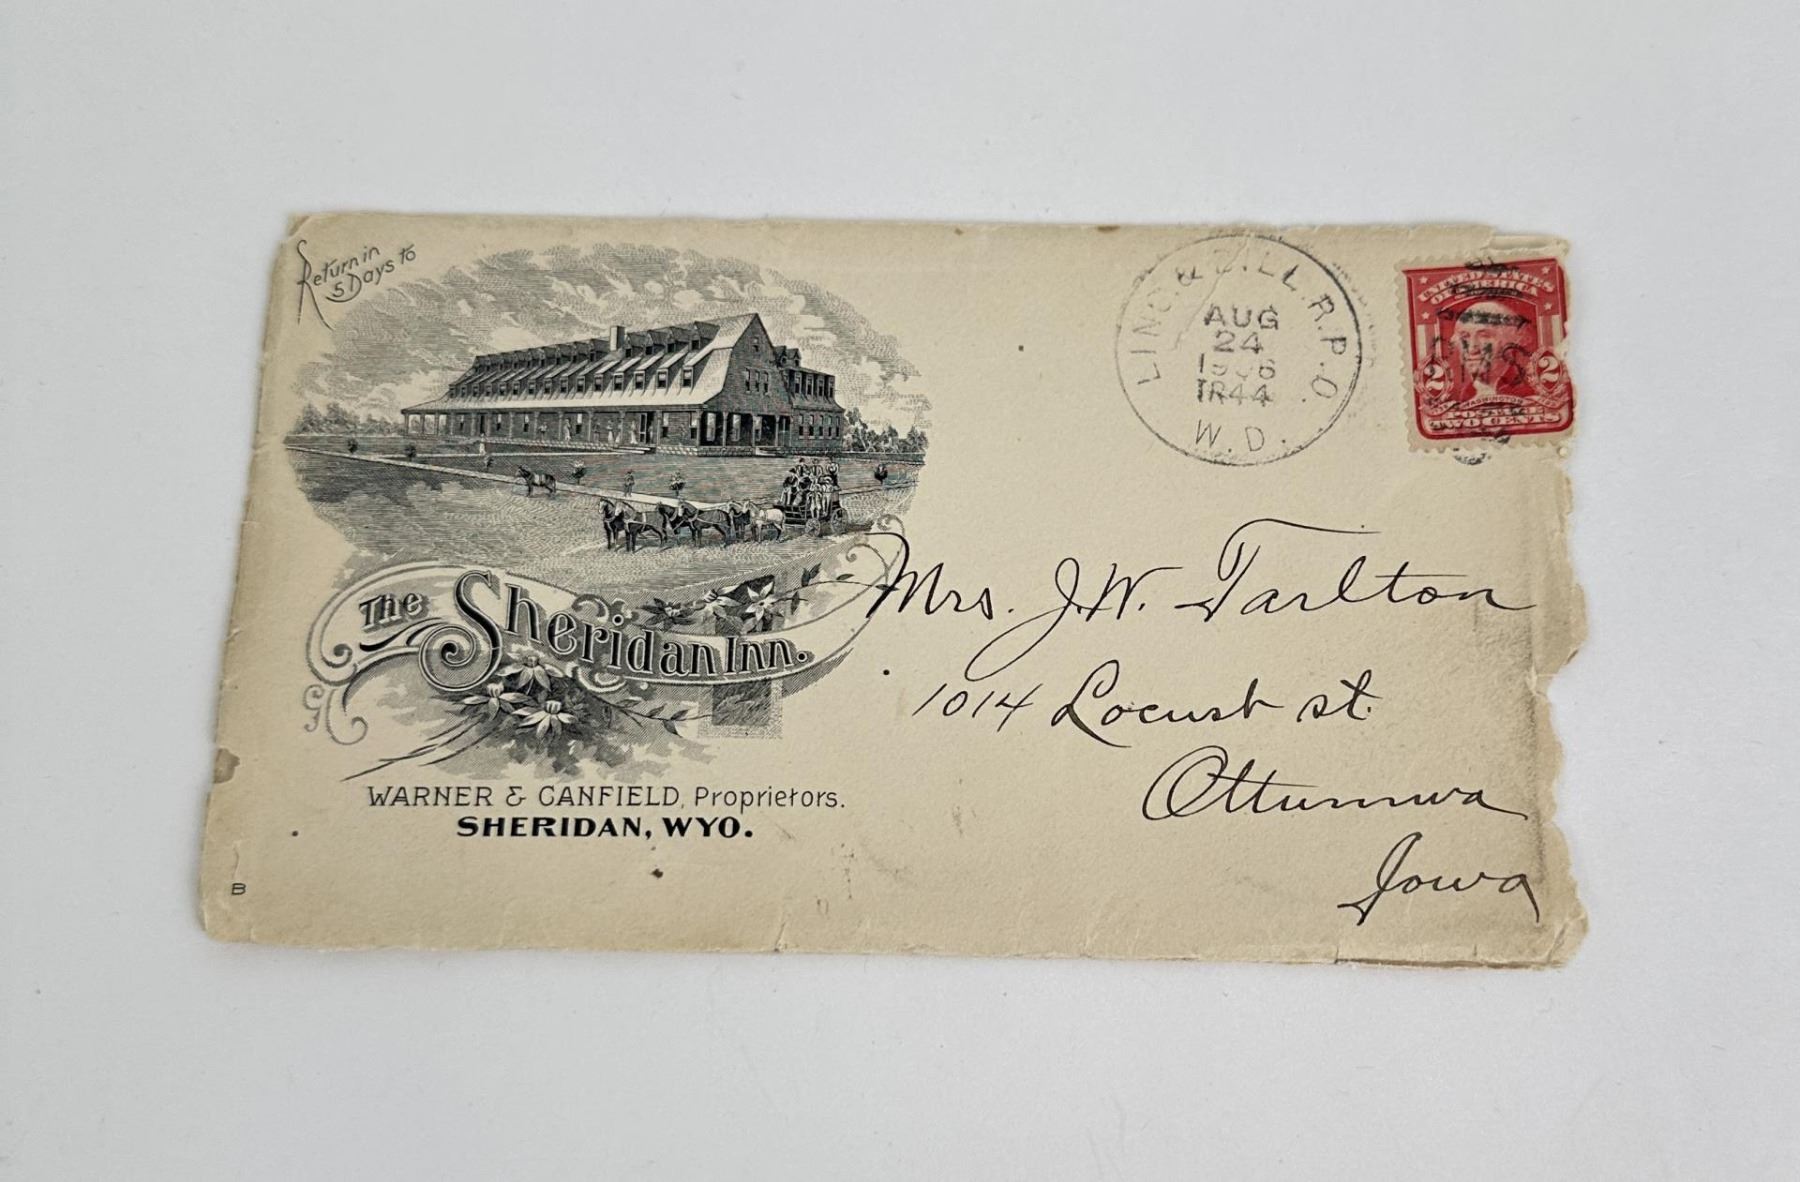 Return in
5 Days to
The Sheridan Inn.
WARNER & CANFIELD, Proprietors.
SHERIDAN, WYO.
B
LINC & BILL. R.P.O.
AUG
24
1906
TR44
W.D.
UNITED STATES
OF AMERICA
RMS
2 2
WASHINGTON
TWO CENTS
Mrs. J.W. Tarlton
1014 Locust st.
Ottumwa
Iowa